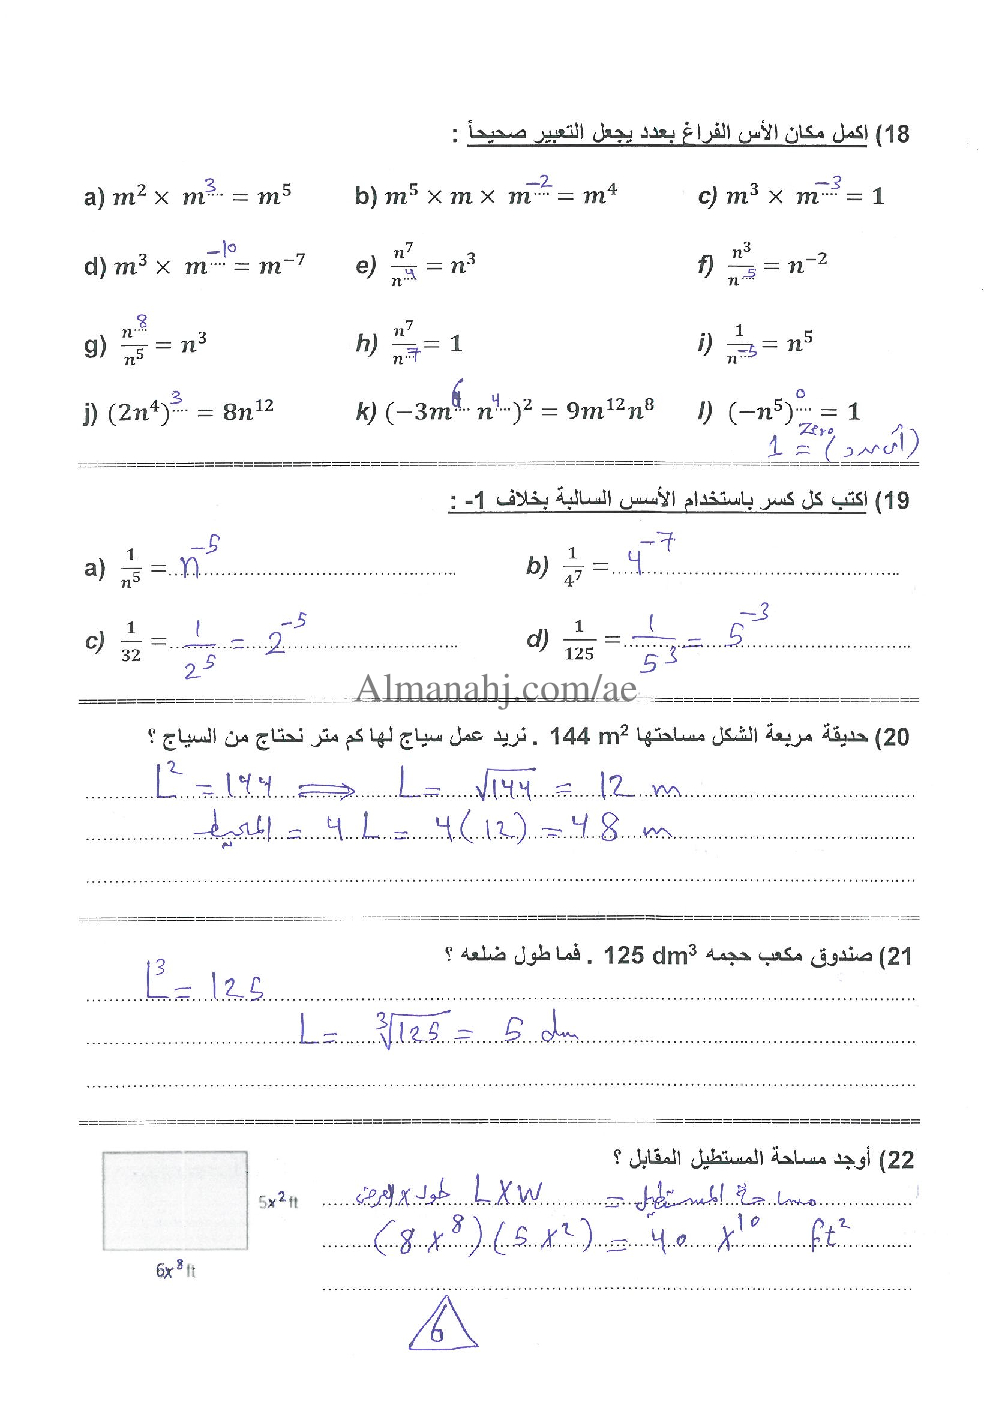 18) اكمل مكان الأس الفراغ بعدد يجعل التعبير صحيحاً :
a) m² × m³ = m⁵ b) m⁵ × m × m⁻² = m⁴ c) m³ × m⁻³ = 1
d) m³ × m⁻¹⁰ = m⁻⁷ e) n⁷/n⁴ = n³ f) n³/n⁵ = n⁻²
g) n⁸/n⁵ = n³ h) n⁷/n⁷ = 1 i) 1/n⁻⁵ = n⁵
j) (2n⁴)³ = 8n¹² k) (−3m⁶ n⁴)² = 9m¹²n⁸ l) (−n⁵)⁰ = 1
1 = (أي عدد)ᶻᵉʳᵒ
19) اكتب كل كسر باستخدام الأسس السالبة بخلاف 1- :
a) 1/n⁵ = n⁻⁵ b) 1/4⁷ = 4⁻⁷
c) 1/32 = 1/2⁵ = 2⁻⁵ d) 1/125 = 1/5³ = 5⁻³
Almanahj.com/ae
20) حديقة مربعة الشكل مساحتها 144 m² . نريد عمل سياج لها كم متر نحتاج من السياج ؟
L² = 144 ⟹ L = √144 = 12 m
المحيط = 4 L = 4(12) = 48 m
21) صندوق مكعب حجمه 125 dm³ . فما طول ضلعه ؟
L³ = 125
L = ∛125 = 5 dm
22) أوجد مساحة المستطيل المقابل ؟
مساحة المستطيل = L X W طول x العرض
5x² ft
(8 x⁸)(5 x²) = 40 x¹⁰ ft²
6x⁸ ft
6